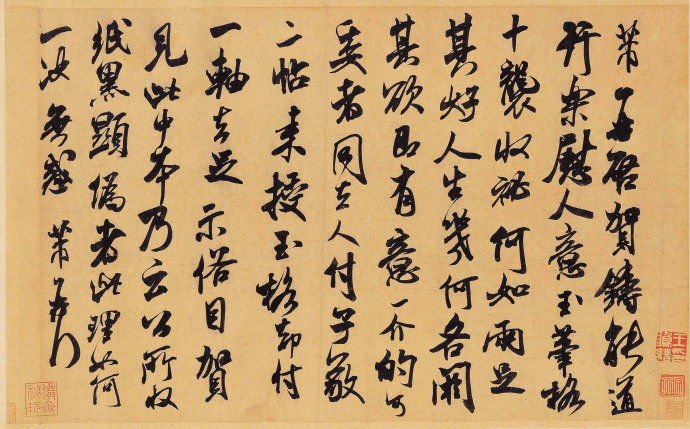 芾再啓賀鑄能道
行樂慰人意玉筆格
十襲收秘何如兩足
其好人生幾何各闕
其欲即有意一介的可
委者同去人付子敬
二帖來授玉格却付
一軸去足示俗目賀
見此中本乃云公所收
紙黑顯偽者此理如何
一決無惑芾再行